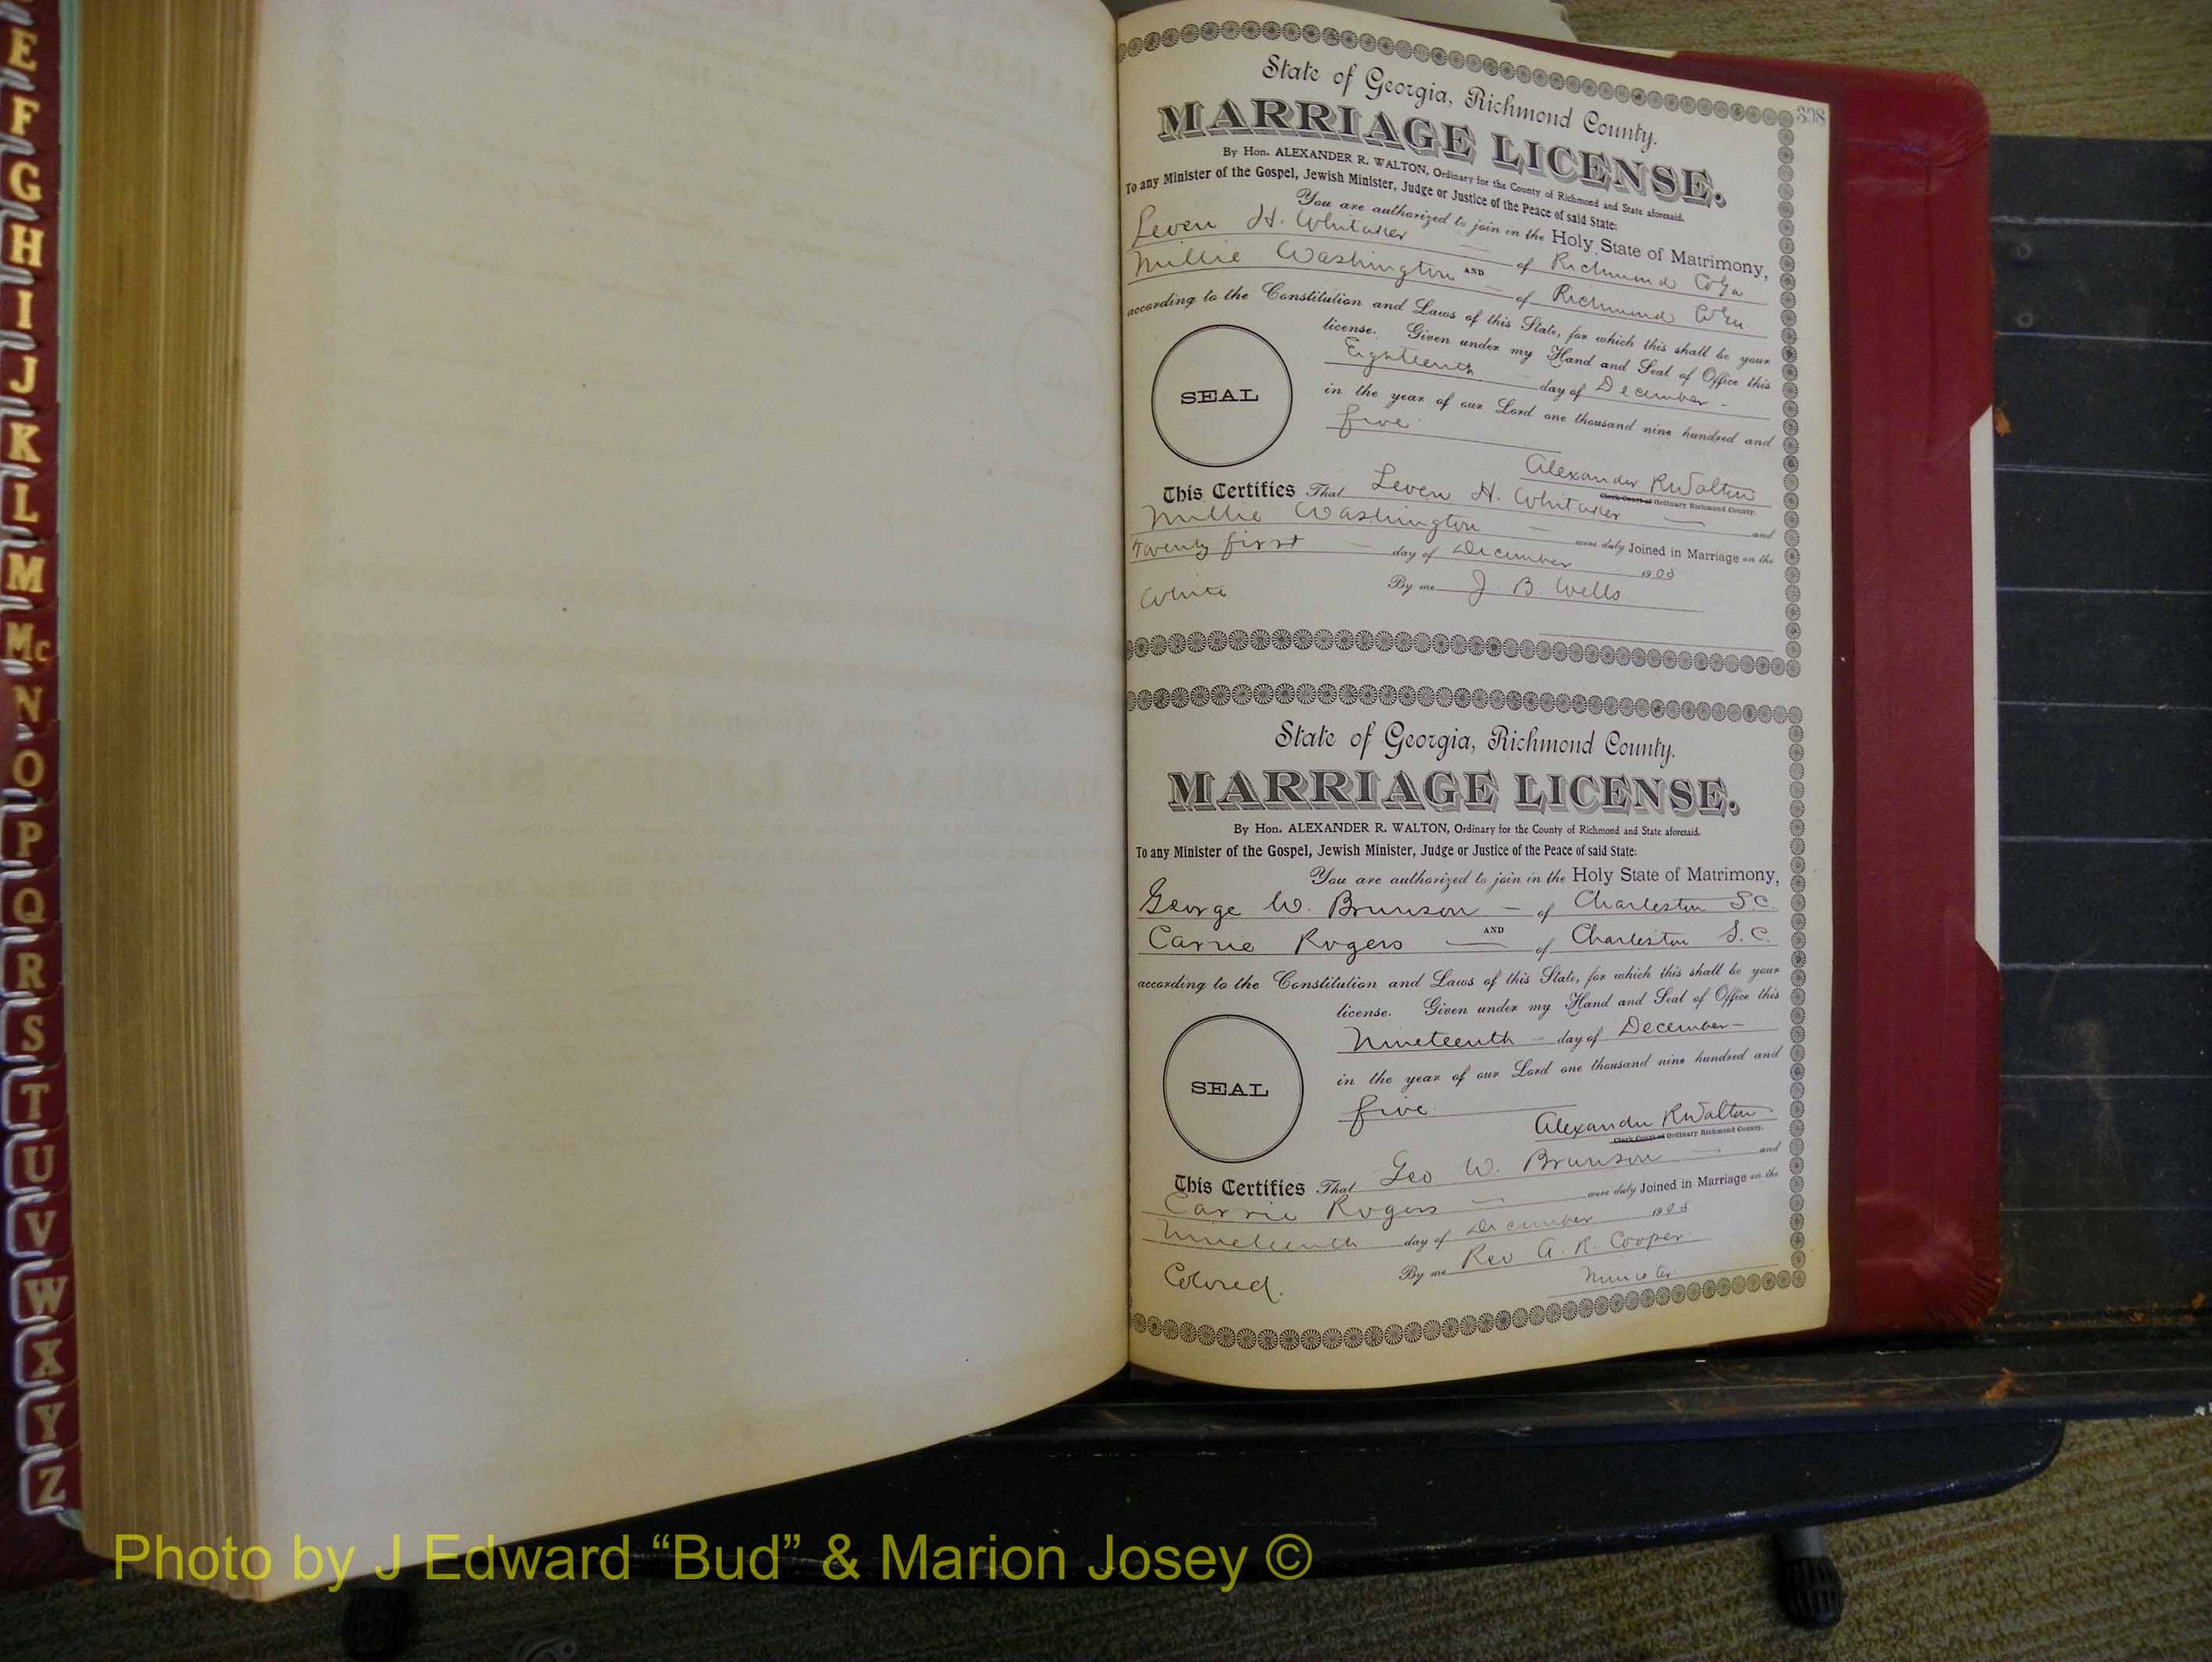 E
F
G
H
I
J
K
L
M
Mc
N
O
P
Q
R
S
T
U
V
W
X
Y
Z
338
State of Georgia, Richmond County.
MARRIAGE LICENSE.
By Hon. ALEXANDER R. WALTON, Ordinary for the County of Richmond and State aforesaid.
To any Minister of the Gospel, Jewish Minister, Judge or Justice of the Peace of said State:
You are authorized to join in the Holy State of Matrimony,
Leven H. Whitaker of Richmond Co Ga
AND
Millie Washington of Richmond Co Ga.
according to the Constitution and Laws of this State, for which this shall be your
license. Given under my Hand and Seal of Office this
Eighteenth day of December
in the year of our Lord one thousand nine hundred and
five
SEAL
Alexander R Walton
Clerk Court of Ordinary Richmond County.
This Certifies That Leven H. Whitaker and
Millie Washington were duly Joined in Marriage on the
Twenty first day of December 1905
White By me J. B. Wells
State of Georgia, Richmond County.
MARRIAGE LICENSE.
By Hon. ALEXANDER R. WALTON, Ordinary for the County of Richmond and State aforesaid.
To any Minister of the Gospel, Jewish Minister, Judge or Justice of the Peace of said State:
You are authorized to join in the Holy State of Matrimony,
George W. Brunson of Charleston S.C.
AND
Carrie Rogers of Charleston S.C.
according to the Constitution and Laws of this State, for which this shall be your
license. Given under my Hand and Seal of Office this
Nineteenth day of December
in the year of our Lord one thousand nine hundred and
five
SEAL
Alexander R Walton
Clerk Court of Ordinary Richmond County.
This Certifies That Geo W. Brunson and
Carrie Rogers were duly Joined in Marriage on the
Nineteenth day of December 1905
Colored. By me Rev A. R. Cooper
Minister
Photo by J Edward “Bud” & Marion Josey ©